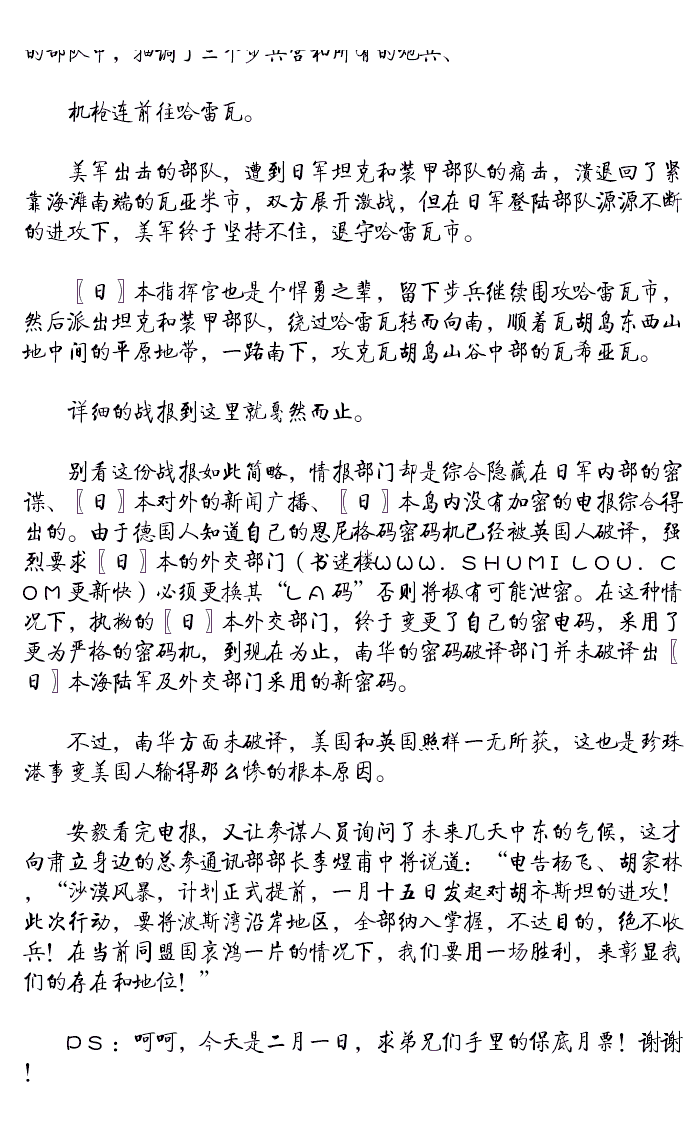 的部队中，抽调了三个步兵营和所有的炮兵、
机枪连前往哈雷瓦。
美军出击的部队，遭到日军坦克和装甲部队的痛击，溃退回了紧
靠海滩南端的瓦亚米市，双方展开激战，但在日军登陆部队源源不断
的进攻下，美军终于坚持不住，退守哈雷瓦市。
〖日〗本指挥官也是个悍勇之辈，留下步兵继续围攻哈雷瓦市，
然后派出坦克和装甲部队，绕过哈雷瓦转而向南，顺着瓦胡岛东西山
地中间的平原地带，一路南下，攻克瓦胡岛山谷中部的瓦希亚瓦。
详细的战报到这里就戛然而止。
别看这份战报如此简略，情报部门却是综合隐藏在日军内部的密
谍、〖日〗本对外的新闻广播、〖日〗本岛内没有加密的电报综合得
出的。由于德国人知道自己的恩尼格码密码机已经被英国人破译，强
烈要求〖日〗本的外交部门（书迷楼ＷＷＷ．ＳＨＵＭＩＬＯＵ．Ｃ
ＯＭ更新快）必须更换其“ＬＡ码”否则将极有可能泄密。在这种情
况下，执拗的〖日〗本外交部门，终于变更了自己的密电码，采用了
更为严格的密码机，到现在为止，南华的密码破译部门并未破译出〖
日〗本海陆军及外交部门采用的新密码。
不过，南华方面未破译，美国和英国照样一无所获，这也是珍珠
港事变美国人输得那么惨的根本原因。
安毅看完电报，又让参谋人员询问了未来几天中东的气候，这才
向肃立身边的总参通讯部部长李煜甫中将说道：“电告杨飞、胡家林
，“沙漠风暴，计划正式提前，一月十五日发起对胡齐斯坦的进攻！
此次行动，要将波斯湾沿岸地区，全部纳入掌握，不达目的，绝不收
兵！在当前同盟国哀鸿一片的情况下，我们要用一场胜利，来彰显我
们的存在和地位！”
ＰＳ：呵呵，今天是二月一日，求弟兄们手里的保底月票！谢谢
！